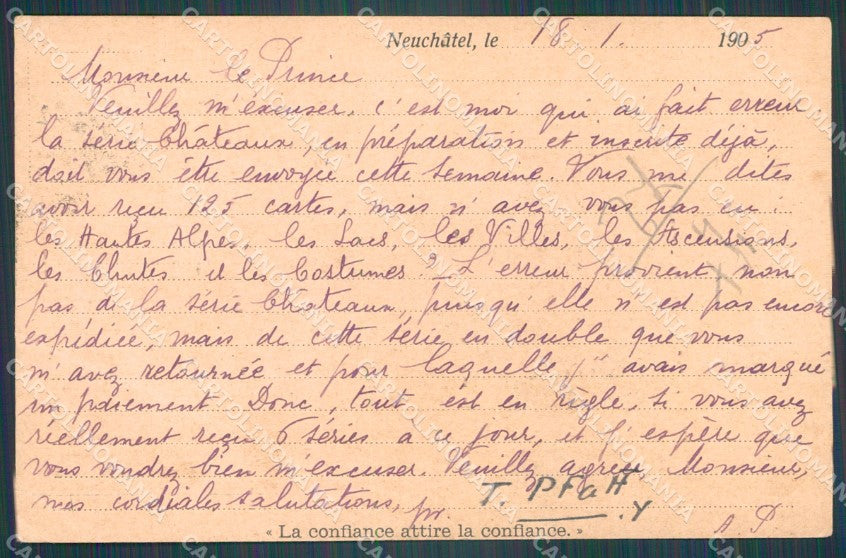 Neuchâtel, le 18. 1. 1905
Monsieur le Prince
Veuillez m'excuser, c'est moi qui ai fait erreur
la série Châteaux, en préparation et inscrite déjà,
doit vous être envoyée cette semaine. Vous me dites
avoir reçu 125 cartes, mais n'avez vous pas eu :
les Hautes Alpes, les Lacs, les Villes, les Ascensions,
les Chutes et les Costumes ? L'erreur provient, non
pas de la série Châteaux, puisqu'elle n'est pas encore
expédiée, mais de cette série en double que vous
m'avez retournée et pour laquelle j'avais marqué
un paiement Donc, tout est en règle, si vous avez
réellement reçu 6 séries à ce jour, et j'espère que
vous voudrez bien m'excuser. Veuillez agréer Monsieur,
mes cordiales salutations,
pr. T. PFaff
« La confiance attire la confiance. »
A P
CARTOLINOMANIA